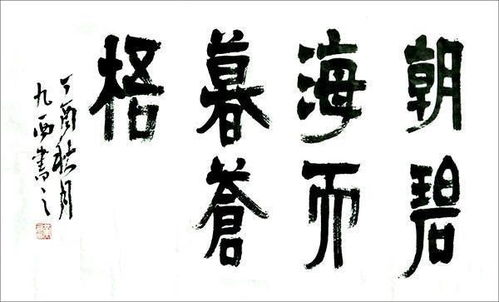 朝碧
海而
暮蒼
格
丁酉秋月
九西書之